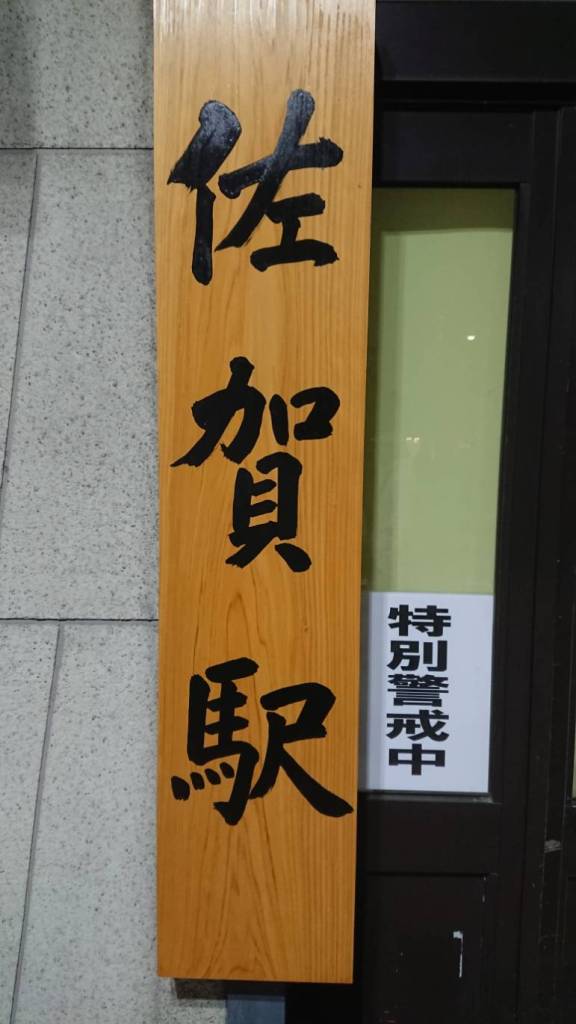 佐賀駅
特別警戒中